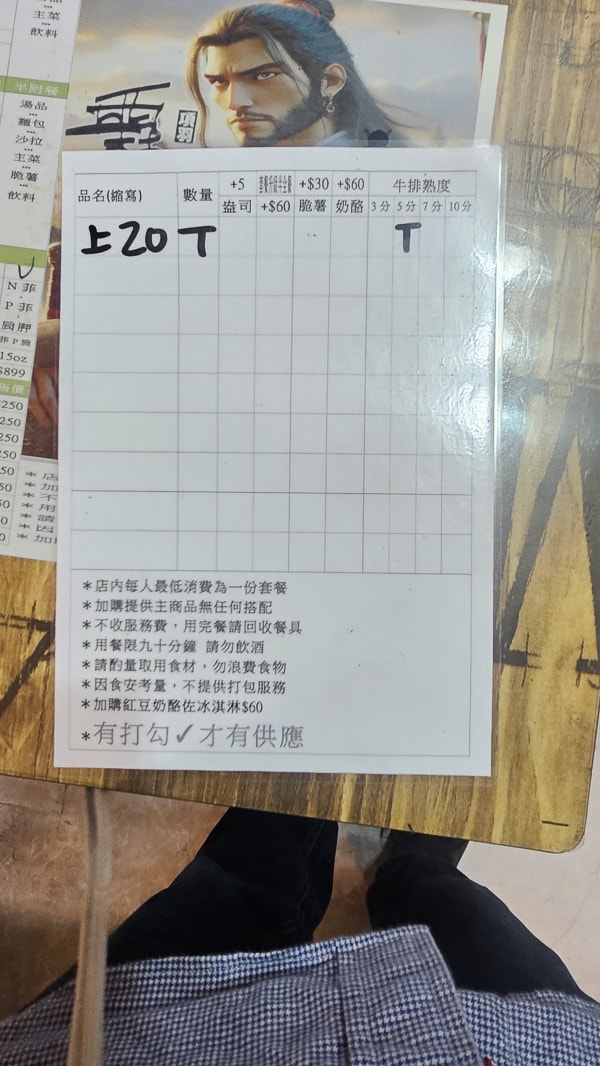 主菜
飲料
半附餐
湯品
麵包
沙拉
主菜
脆薯
飲料
N 菲
P 菲
菲 P 肩
15oz
$899
售價
250
250
250
250
項羽
品名(縮寫) 數量 +5 盎司 +$60 +$30 脆薯 +$60 奶酪 牛排熟度
3分 5分 7分 10分
上20 T T
*店內每人最低消費為一份套餐
*加購提供主商品無任何搭配
*不收服務費，用完餐請回收餐具
*用餐限九十分鐘 請勿飲酒
*請酌量取用食材，勿浪費食物
*因食安考量，不提供打包服務
*加購紅豆奶酪佐冰淇淋$60
*有打勾✓才有供應